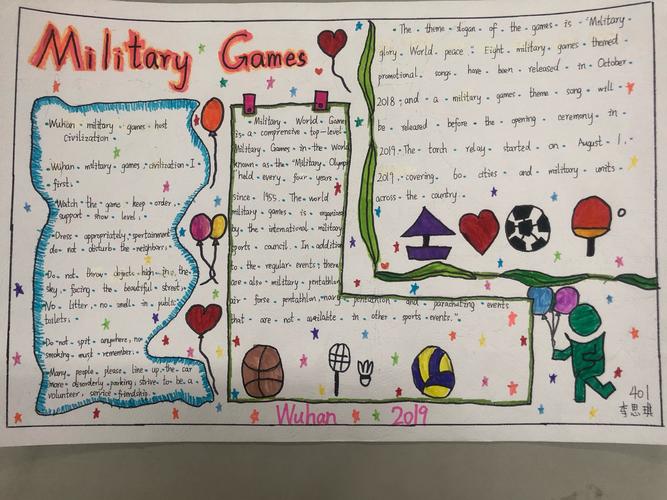 Military Games
Wuhan military games host
civilization.
Wuhan military games civilization I
first.
Watch the game keep order,
support show level.
Dress appropriately, sportainment
do not disturb the neighbors.
Do not throw objects high in the
sky, facing the beautiful street,
No litter, no smell in public
toilets.
Do not spit anywhere, no
smoking must remember.
Many people please line up the car
more disorderly parking, strive to be a
volunteer service friendship.
Military World Games
is a comprenive top-level
Military Games in the World
known as the "Military Olymp
held every four years
since 1955. The world
military games is organized
by the international military
sports council. In addition
to the regular events, there
are also military pentathlon
air forse pentathlon, navy pentathlon and parachuting events
that are not available in other sports events.".
The theme slogan of the games is "Military
glory World peace". Eight military games themed
promotional songs have been released in October
2018, and a military games theme song will
be released before the opening ceremony in
2019. The torch relay started on August 1,
2019, covering 60 cities and military units
across the country.
Wuhan 2019
401
李思琪